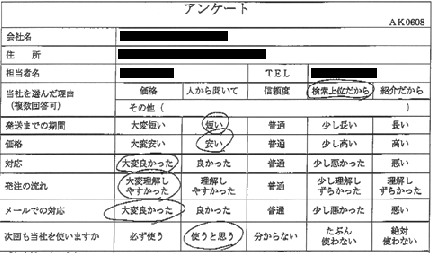 アンケート
AK0608
会社名
住 所
担当者名 TEL
当社を選んだ理由 価格 人から聞いて 信頼度 検索上位だから 紹介だから
(複数回答可) その他 ( )
発送までの期間 大変短い 短い 普通 少し長い 長い
価格 大変安い 安い 普通 少し高い 高い
対応 大変良かった 良かった 普通 少し悪かった 悪い
発注の流れ 大変理解しやすかった 理解しやすかった 普通 少し理解しずらかった 理解しずらかった
メールでの対応 大変良かった 良かった 普通 少し悪かった 悪い
次回も当社を使いますか 必ず使う 使うと思う 分からない たぶん使わない 絶対使わない